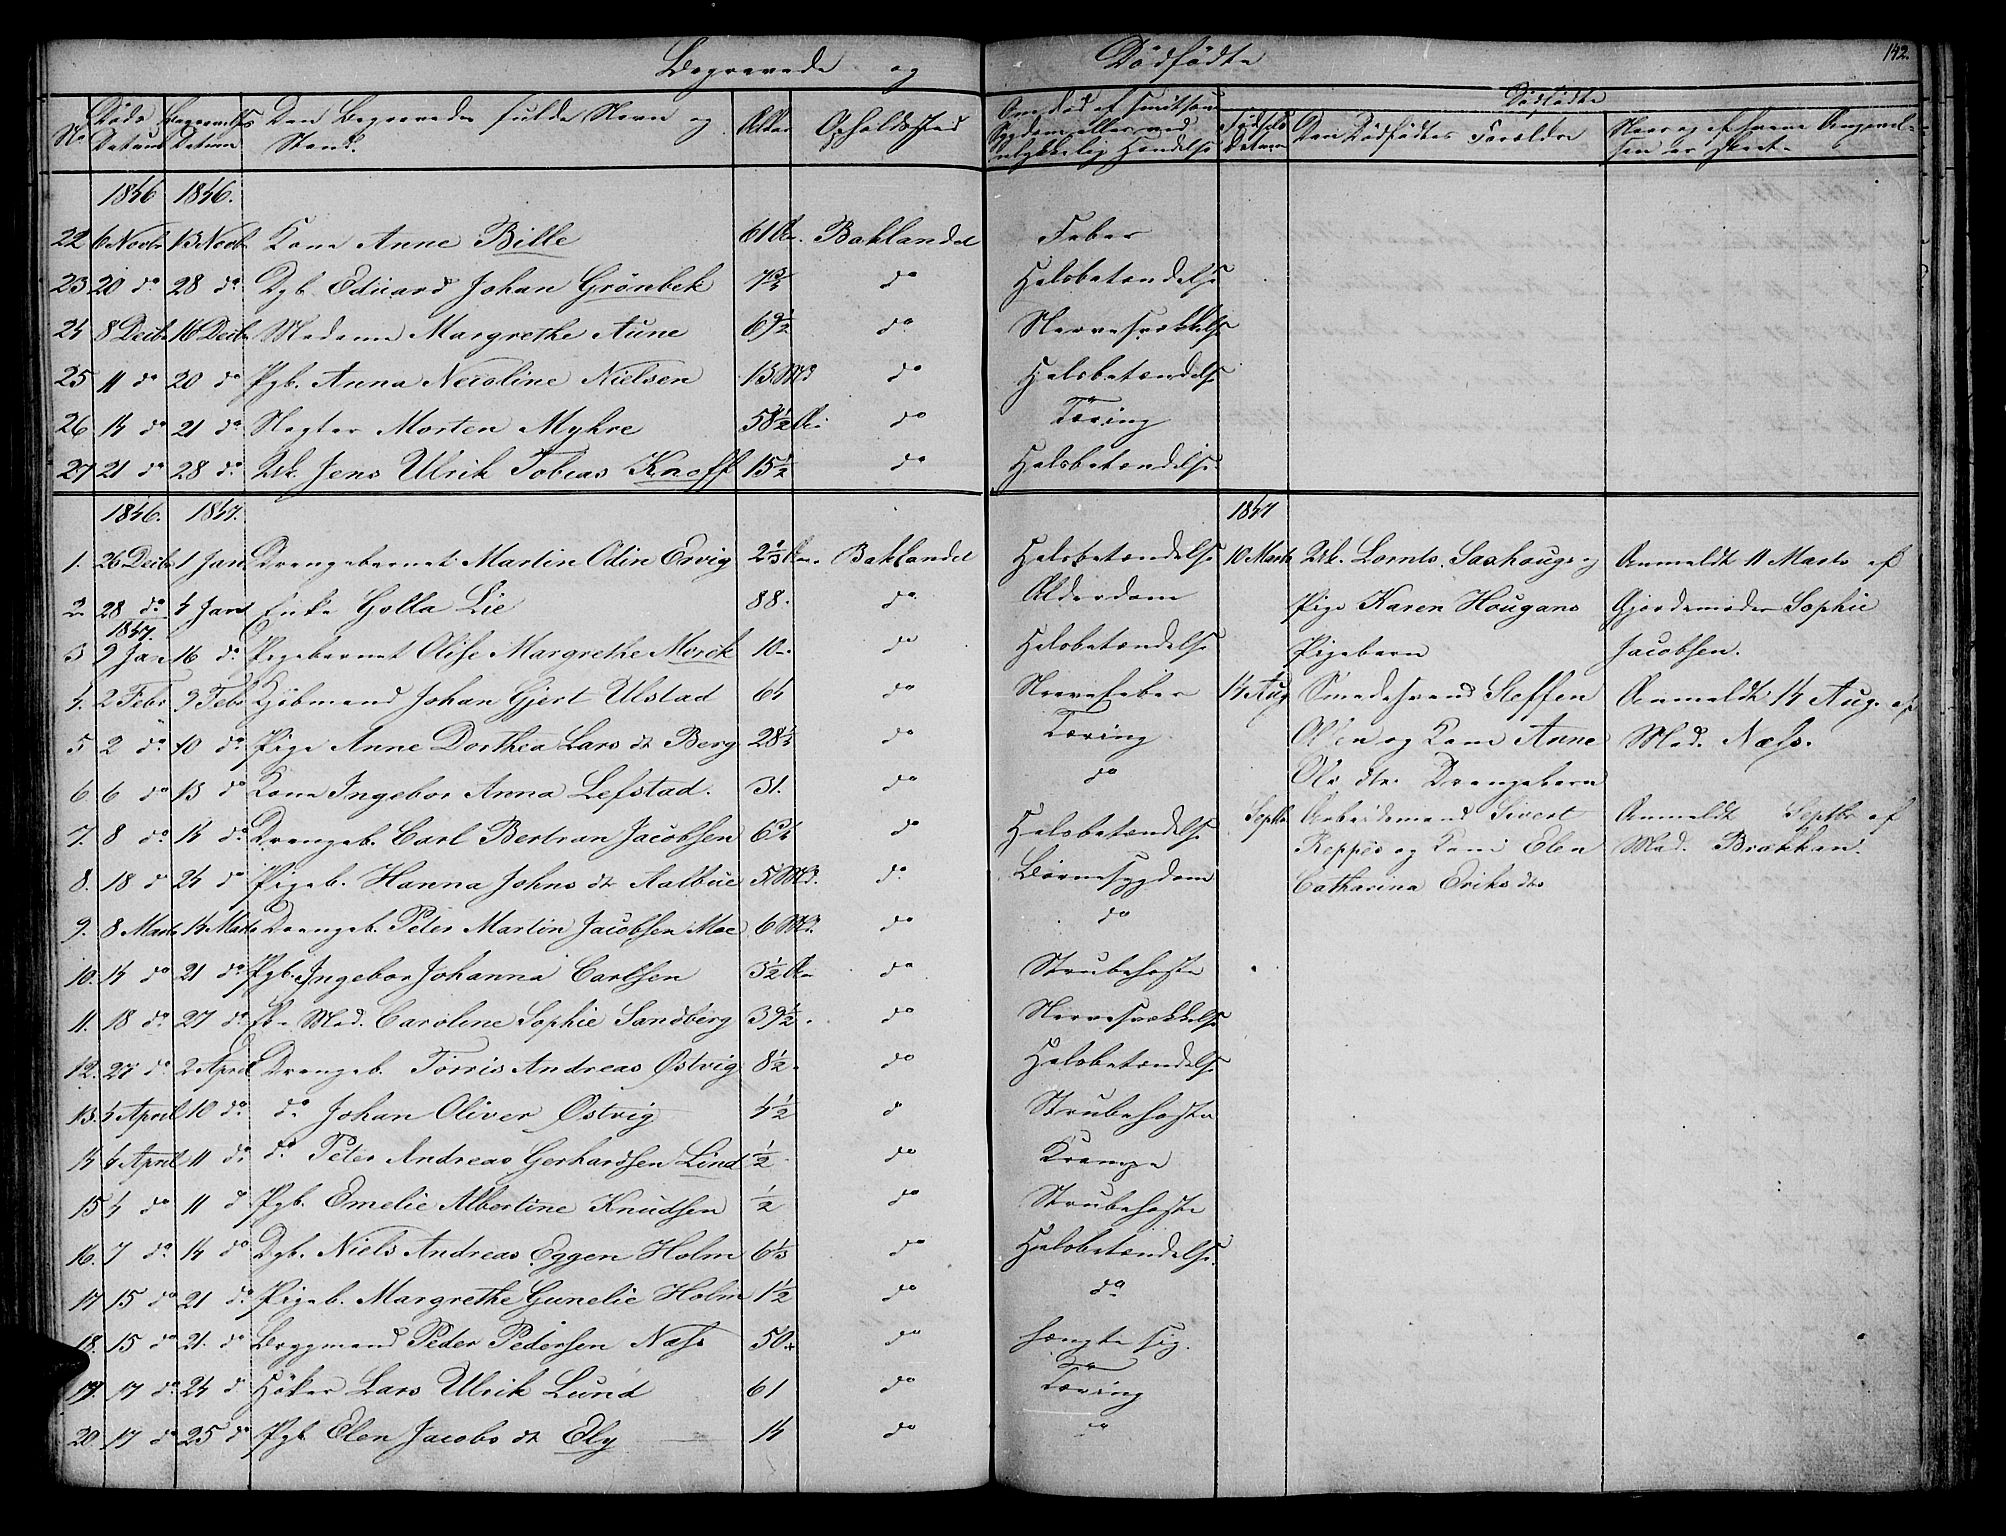 142.
Begravede og Dödfödte
No Döds Datum Begravelses Datum Den Begravedes fulde Navn og Stand. Alder Opholdssted Om död af smitsom Sygdom eller ved ulykkelig Hændelse Dödfödte
Födsels Datum Den Dödfödtes Forældre Naar og af hvem Anmeldelsen er skeet.
1846 1846.
22 6 Novbr 13 Novbr Kone Anne Bille 61 Aar. Baklandet Feber
23 20 do 28 do Dgb. Eduard Johan Grönbek 7¾ do Halsbetændelse
24 8 Decbr 16 Decbr Madame Margrethe Aune 69½ do Nervesvækkelse
25 11 do 20 do Pgb. Anna Nicoline Nielsen 13 Md do Halsbetændelse
26 14 do 21 do Vægter Morten Myhre 58½ Aar do Tæring
27 21 do 28 do Uk Jens Ulrik Tobias Knoff 15½ do Halsbetændelse
1846. 1847. 1847
1. 26 Decbr 1 Jan Drengebarnet Martin Odin Ervig 2⅓ Aar. Baklandet Halsbetændelse 10 Marts Uk. Lornts Saxhaugs og Anmeldt 11 Marts af
2 28 do 4 Jan Enke Golla Lie 88. do Alderdom Pige Karen Hougans Gjordemoder Sophie
1847.
3 9 Jan 16 do Pigebarnet Olise Margrethe Morck 10 do Halsbetændelse Pigebarn Jacobsen.
4. 2 Febr 9 Febr Kjöbmand Johan Gjert Ulstad 64 do Nervefeber 14 Aug Smedesvend Steffen Anmeldt 14 Aug. af
5 2 do 10 do Pige Anne Dorthea Lars dt Berg 28¼ do Tæring Olsen og Kone Anne Mad. Næss.
6 6 do 13 do Kone Ingebor Anna Lefstad. 31. do do Ols dtr Drengebarn
7. 8 do 14 do Drengeb. Carl Bertran Jacobsen 6¾ do Halsbetændelse Septbr Arbeidsmand Sivert Anmeldt Septbr af
8. 18 do 24 do Pigeb. Hanna Johns dt Aalbue 5 Md. do Börnesygdom Reppes og Kone Elen Mad. Brækken.
Catharina Eriks dtr
9. 8 Marts 14 Marts Drengeb. Peter Martin Jacobsen Moe 6 Md. do do
10. 14 do 21 do Pgb. Ingebor Johanna Carlsen 3½ Aar do Strubehoste
11. 18 do 27 do Mad. Caroline Sophie Sandberg 39½. do Nervesvækkelse
12. 27 do 2 April Drengeb. Torris Andreas Østvig 8½ do Halsbetændelse
13. 4 April 10 do do Johan Oliver Østvig 4½ do Strubehoste
14 4 April 11 do do Peter Andreas Gerhardsen Lind ½ do Krampe
15 4 do 11 do Pgb. Emelie Albertine Knudsen ½ do Strubehoste
16. 7 do 14 do Dgb. Niels Andreas Eggen Holm 6⅓ do Halsbetændelse.
17 15 do 21 do Pigeb. Margrethe Gunelie Holm 1½ do do
18. 15 do 21. do Bryggmand Peder Pedersen Næss 50 do hængte sig.
19. 17 do 24 do Höker Lars Ulrik Lund 61 do Tæring
20 17 do 25 do Pgb. Elen Jacobs dt Ely 14 do do